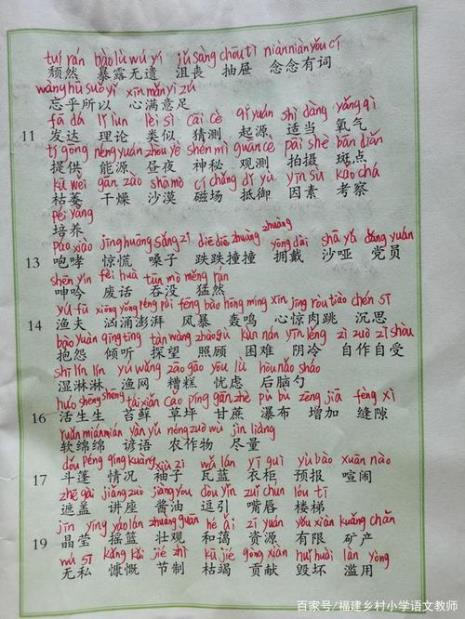 tuí rán bào lù wú yí jǔ sàng chōu tì niàn niàn yǒu cí
颓然 暴露无遗 沮丧 抽屉 念念有词
wàng hū suǒ yǐ xīn mǎn yì zú
忘乎所以 心满意足
fā dá lǐ lùn lèi sì cāi cè qǐ yuán shì dàng yǎng qì
11 发达 理论 类似 猜测 起源 适当 氧气
tí gōng néng yuán zhòu yè shén mì guān cè pāi shè bān diǎn
提供 能源 昼夜 神秘 观测 拍摄 斑点
kū wěi gān zào shā mò cí chǎng dǐ yù yīn sù kǎo chá
枯萎 干燥 沙漠 磁场 抵御 因素 考察
péi yǎng
培养
páo xiào jīng huāng sǎng zi diē diē zhuàng zhuàng yōng dài shā yǎ dǎng yuán
13 咆哮 惊慌 嗓子 跌跌撞撞 拥戴 沙哑 党员
shēn yín fèi huà tūn mò měng rán
呻吟 废话 吞没 猛然
yú fū xiōng yǒng péng pài fēng bào hōng míng xīn jīng ròu tiào chén sī
14 渔夫 汹涌澎湃 风暴 轰鸣 心惊肉跳 沉思
bào yuàn qīng tīng tàn wàng zhào gù kùn nán yīn lěng zì zuò zì shòu
抱怨 倾听 探望 照顾 困难 阴冷 自作自受
shī lín lín yú wǎng zāo gāo yōu lǜ hòu nǎo sháo
湿淋淋 渔网 糟糕 忧虑 后脑勺
huó shēng shēng tái xiǎn cǎo píng gān zhè pù bù zēng jiā fèng xì
16 活生生 苔藓 草坪 甘蔗 瀑布 增加 缝隙
ruǎn mián mián yàn yǔ nóng zuò wù jìn liàng
软绵绵 谚语 农作物 尽量
dǒu péng qíng kuàng xiù zi wǎ lán yī guì yù bào xuān nào
17 斗篷 情况 袖子 瓦蓝 衣柜 预报 喧闹
zhē gài jiǎng zuò jiàng yóu dòu yǐn zuǐ chún lóu tī
遮盖 讲座 酱油 逗引 嘴唇 楼梯
jīng yíng yáo lán zhuàng guān hé ǎi zī yuán yǒu xiàn kuàng chǎn
19 晶莹 摇篮 壮观 和蔼 资源 有限 矿产
wú sī kāng kǎi jié zhì kū jié gòng xiàn huǐ huài làn yòng
无私 慷慨 节制 枯竭 贡献 毁坏 滥用
百家号/福建乡村小学语文教师